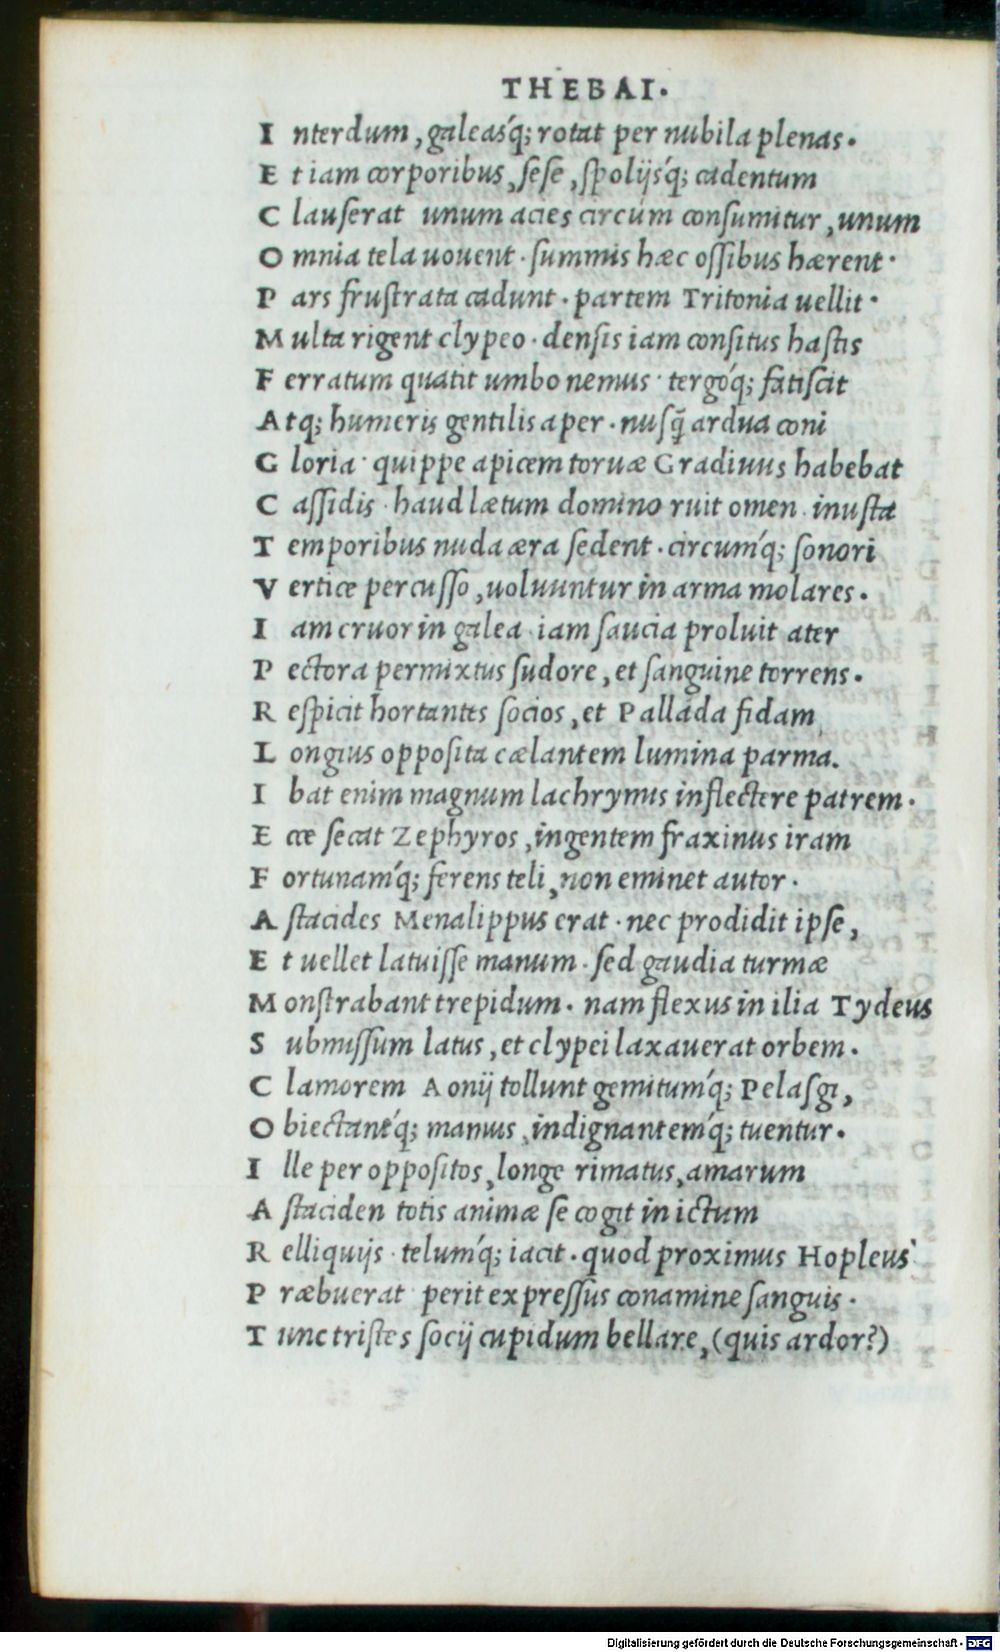 THEBAI.
I nterdum, galeasq́; rotat per nubila plenas.
E t iam corporibus, sese, spolijsq́; cadentum
C lauserat unum acies circum consumitur, unum
O mnia tela uouent. summis hæc ossibus hærent.
P ars frustrata cadunt. partem Tritonia uellit.
M ulta rigent clypeo. densis iam consitus hastis
F erratum quatit umbo nemus. tergóq́; fatiscit
A tq; humeris gentilis aper. nusq̄ ardua coni
G loria. quippe apicem toruæ Gradiuus habebat
C assidis. haud lætum domino ruit omen. inusta
T emporibus nuda æra sedent. circumq́; sonori
V ertice percusso, uoluuntur in arma molares.
I am cruor in galea. iam saucia proluit ater
P ectora permixtus sudore, et sanguine torrens.
R espicit hortantes socios, et Pallada fidam,
L ongius opposita cælantem lumina parma.
I bat enim magnum lachrymis inflectere patrem.
E cce secat Zephyros, ingentem fraxinus iram
F ortunamq́; ferens teli, non eminet autor.
A stacides Menalippus erat. nec prodidit ipse,
E t uellet latuisse manum. sed gaudia turmæ
M onstrabant trepidum. nam flexus in ilia Tydeus
S ubmissum latus, et clypei laxauerat orbem.
C lamorem Aonij tollunt gemitumq́; Pelasgi,
O biectantq́; manus, indignantemq́; tuentur.
I lle per oppositos, longe rimatus, amarum
A staciden totis animæ se cogit in ictum
R elliquijs. telumq́; iacit. quod proximus Hopleus
P ræbuerat perit expressus conamine sanguis.
T unc tristes socij cupidum bellare, (quis ardor?)
Digitalisierung gefördert durch die Deutsche Forschungsgemeinschaft - DFG